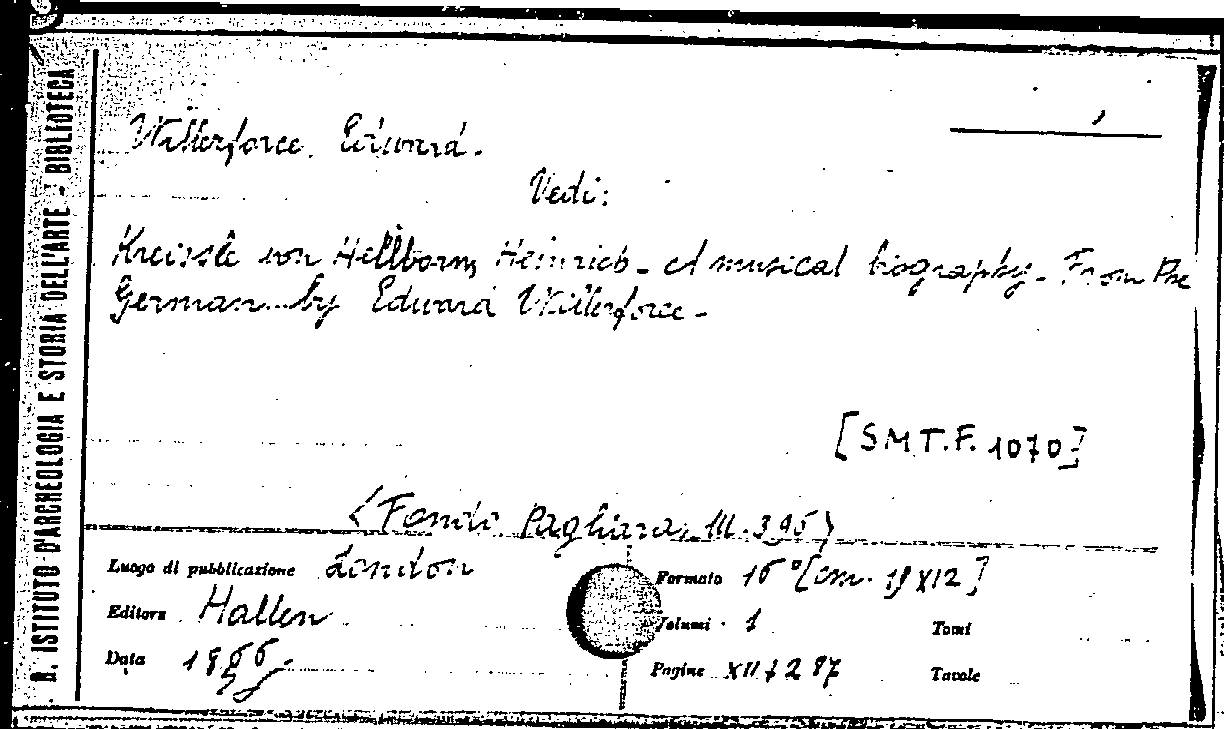 R. ISTITUTO D'ARCHEOLOGIA E STORIA DELL'ARTE - BIBLIOTECA
Willerforce, Edward.
Vedi:
Kreissle von Hellborn, Heinrich - A musical biography - From the
German by Edward Willerforce -
[SMT.F. 1070]
<Fondo Pagliara, III.395>
Luogo di pubblicazione London
Formato 16° [cm. 19X12]
Editore Hallen
Volumi 1
Tomi
Data
Pagine XII+287
Tavole